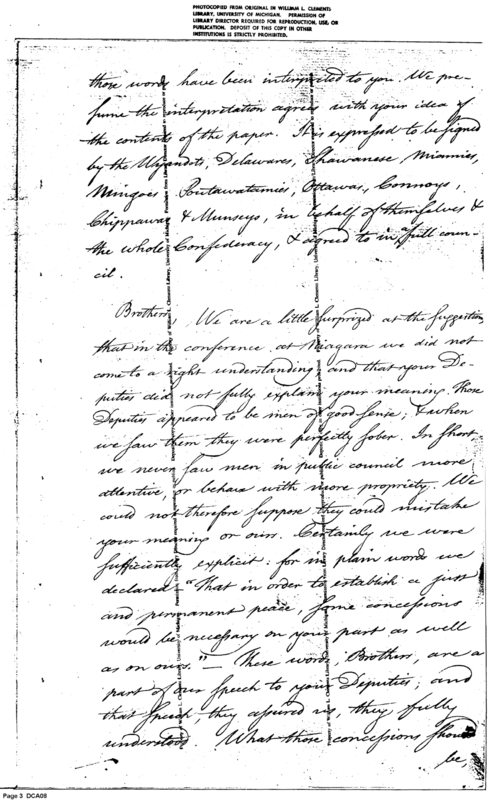 PHOTOCOPIED FROM ORIGINAL IN WILLIAM L. CLEMENTS
LIBRARY, UNIVERSITY OF MICHIGAN. PERMISSION OF
LIBRARY DIRECTOR REQUIRED FOR REPRODUCTION, USE, OR
PUBLICATION. DEPOSIT OF THIS COPY IN OTHER
INSTITUTIONS IS STRICTLY PROHIBITED.
those words have been interpreted to you. We pre-
sume the interpretation agrees with your idea of
the contents of the paper. It is expressed to be signed
by the Wyandots, Delawares, Shawanese, Miamies,
Mingoes, Poutawatamies, Ottawas, Connoys,
Chippawas & Munseys, in behalf of themselves &
the whole Confederacy, & agreed to in a full coun-
cil.
Brothers, We are a little surprized at the suggestion,
that in the conference at Niagara we did not
come to a right understanding, and that your De-
puties did not fully explain your meaning. Those
Deputies appeared to be men of good sense; & when
we saw them they were perfectly sober. In short,
we never saw men in public council more
attentive, or behave with more propriety. We
could not therefore suppose they could mistake
your meaning or ours. Certainly we were
sufficiently explicit: for in plain words we
declared - "That in order to establish a just
and permanent peace, some concessions
would be necessary on your part as well
as on ours." — These words, Brothers, are a
part of our speech to your Deputies; and
that speech, they assured us, they fully
understood. What those concessions should
be,
Page 3 DCA08